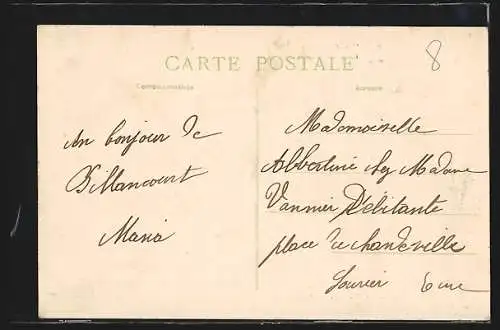 CARTE POSTALE
8
Correspondance
Adresse
un bonjour de
Billancourt
Maria
Mademoiselle
Albertine chez Madame
Vannier Débitante
place de
Louvier Eure